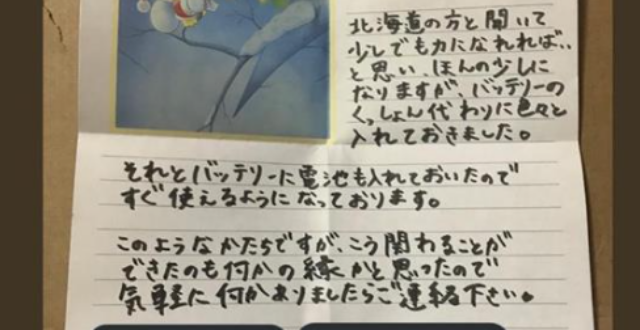 北海道の方と聞いて
少しでも力になれれば..
と思い、ほんの少しに
なりますが、バッテリーの
くっしょん代わりに色々と
入れておきました。
それとバッテリーに電池も入れておいたので
すぐ使えるようになっております。
このようなかたちですが、こう関わることが
できたのも何かの縁かと思ったので
気軽に何かありましたらご連絡下さい。